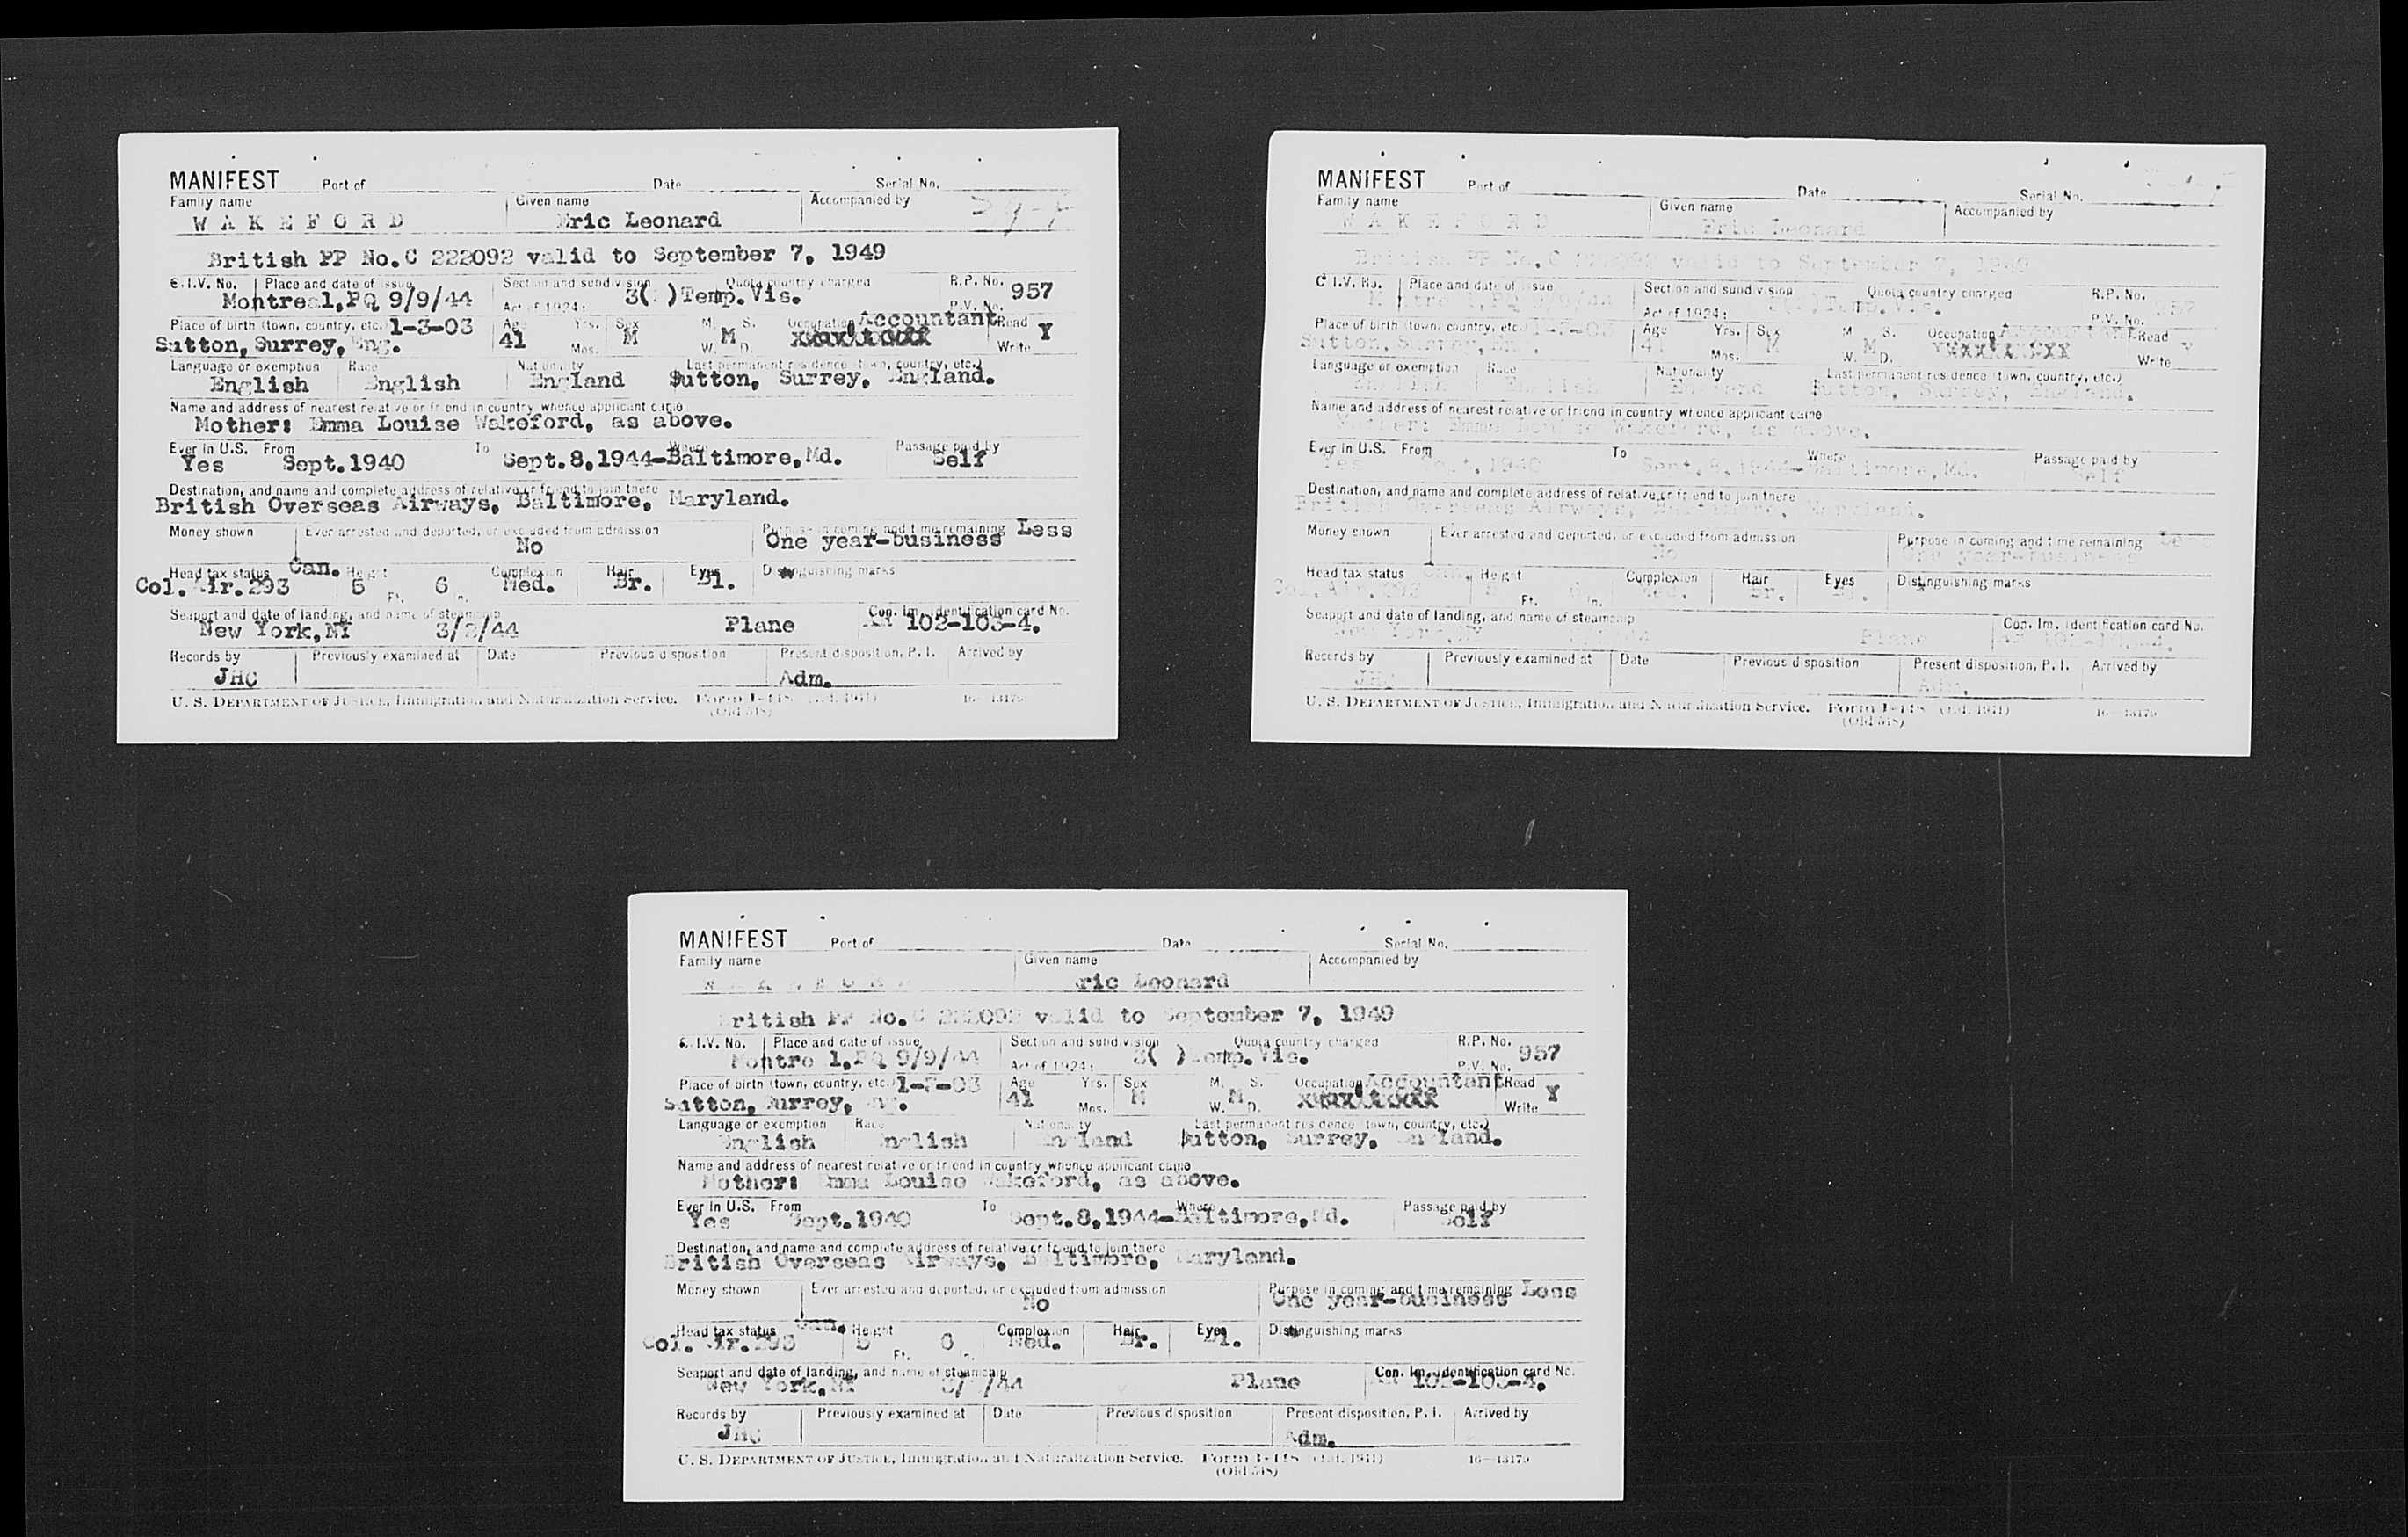 MANIFEST Port of Date Serial No.
Family name Given name Accompanied by
WAKEFORD Eric Leonard
British PP No. C 222092 valid to September 7, 1949
I.V. No. Place and date of issue Section and subdivision Quota country charged R.P. No. 957
Montreal, PQ 9/9/44 Act of 1924: 3( ) Temp. Vis. P.V. No.
Place of birth (town, country, etc.) 1-3-03 Age Yrs. Sex M. S. Occupation Accountant Read
Sutton, Surrey, Eng. 41 Mos. M M W. D. Write Y
Language or exemption Race Nationality Last permanent residence (town, country, etc.)
English English England Sutton, Surrey, England.
Name and address of nearest relative or friend in country whence applicant came
Mother: Emma Louise Wakeford, as above.
Ever in U.S. From To Where Passage paid by
Yes Sept. 1940 Sept. 8, 1944-Baltimore, Md. Self
Destination, and name and complete address of relative or friend to join there
British Overseas Airways, Baltimore, Maryland.
Money shown Ever arrested and deported, or excluded from admission Purpose in coming and time remaining Less
No One year-business
Head tax status Can. Height Complexion Hair Eyes Distinguishing marks
Col. Air. 293 5 Ft. 6 In. Med. Br. Bl.
Seaport and date of landing, and name of steamship Con. Im. Identification card No.
New York, NY Plane 102-103-4.
Records by Previously examined at Date Previous disposition Present disposition, P. I. Arrived by
JHC Adm.
U. S. DEPARTMENT OF JUSTICE, Immigration and Naturalization Service. Form I-448
(Old 548)
MANIFEST Port of Date Serial No.
Family name Given name Accompanied by
WAKEFORD Eric Leonard
British PP No. C 222092 valid to September 7, 1949
I.V. No. Place and date of issue Section and subdivision Quota country charged R.P. No. 957
Montreal, PQ 9/9/44 Act of 1924: Temp. Vis. P.V. No.
Place of birth (town, country, etc.) Age Yrs. Sex M S. Occupation Accountant Read
Sutton, Surrey, 41 Mos. M M W. D. Write Y
Language or exemption Race Nationality Last permanent residence (town, country, etc.)
English English England Sutton, Surrey, England.
Name and address of nearest relative or friend in country whence applicant came
Mother: Emma Louise Wakeford, as above.
Ever in U.S. From To Where Passage paid by
Yes Sept. 1940 Sept. 8, 1944-Baltimore, Md. Self
Destination, and name and complete address of relative or friend to join there
British Overseas Airways, Baltimore, Maryland.
Money shown Ever arrested and deported, or excluded from admission Purpose in coming and time remaining Less
No One year-business
Head tax status Height Complexion Hair Eyes Distinguishing marks
Ft. In. Med. Br.
Seaport and date of landing, and name of steamship Con. Im. Identification card No.
New York, Plane
Records by Previously examined at Date Previous disposition Present disposition, P. I. Arrived by
JHC Adm.
U. S. DEPARTMENT OF JUSTICE, Immigration and Naturalization Service. Form I-448
(Old 548)
MANIFEST Port of Date Serial No.
Family name Given name Accompanied by
WAKEFORD Eric Leonard
British PP No. C 222092 valid to September 7, 1949
I.V. No. Place and date of issue Section and subdivision Quota country charged R.P. No. 957
Montreal, PQ 9/9/44 Act of 1924: 3( ) Temp. Vis. P.V. No.
Place of birth (town, country, etc.) 1-3-03 Age Yrs. Sex M. S. Occupation Accountant Read
Sutton, Surrey, Eng. 41 Mos. M M W. D. Write Y
Language or exemption Race Nationality Last permanent residence (town, country, etc.)
English English England Sutton, Surrey, England.
Name and address of nearest relative or friend in country whence applicant came
Mother: Emma Louise Wakeford, as above.
Ever in U.S. From To Where Passage paid by
Yes Sept. 1940 Sept. 8, 1944-Baltimore, Md. Self
Destination, and name and complete address of relative or friend to join there
British Overseas Airways, Baltimore, Maryland.
Money shown Ever arrested and deported, or excluded from admission Purpose in coming and time remaining Less
No One year-business
Head tax status Can. Height Complexion Hair Eyes Distinguishing marks
Col. Air. 293 5 Ft. 6 In. Med. Br. Bl.
Seaport and date of landing, and name of steamship Con. Im. Identification card No.
New York, NY Plane 102-103-4.
Records by Previously examined at Date Previous disposition Present disposition, P. I. Arrived by
JHC Adm.
U. S. DEPARTMENT OF JUSTICE, Immigration and Naturalization Service. Form I-448
(Old 548)